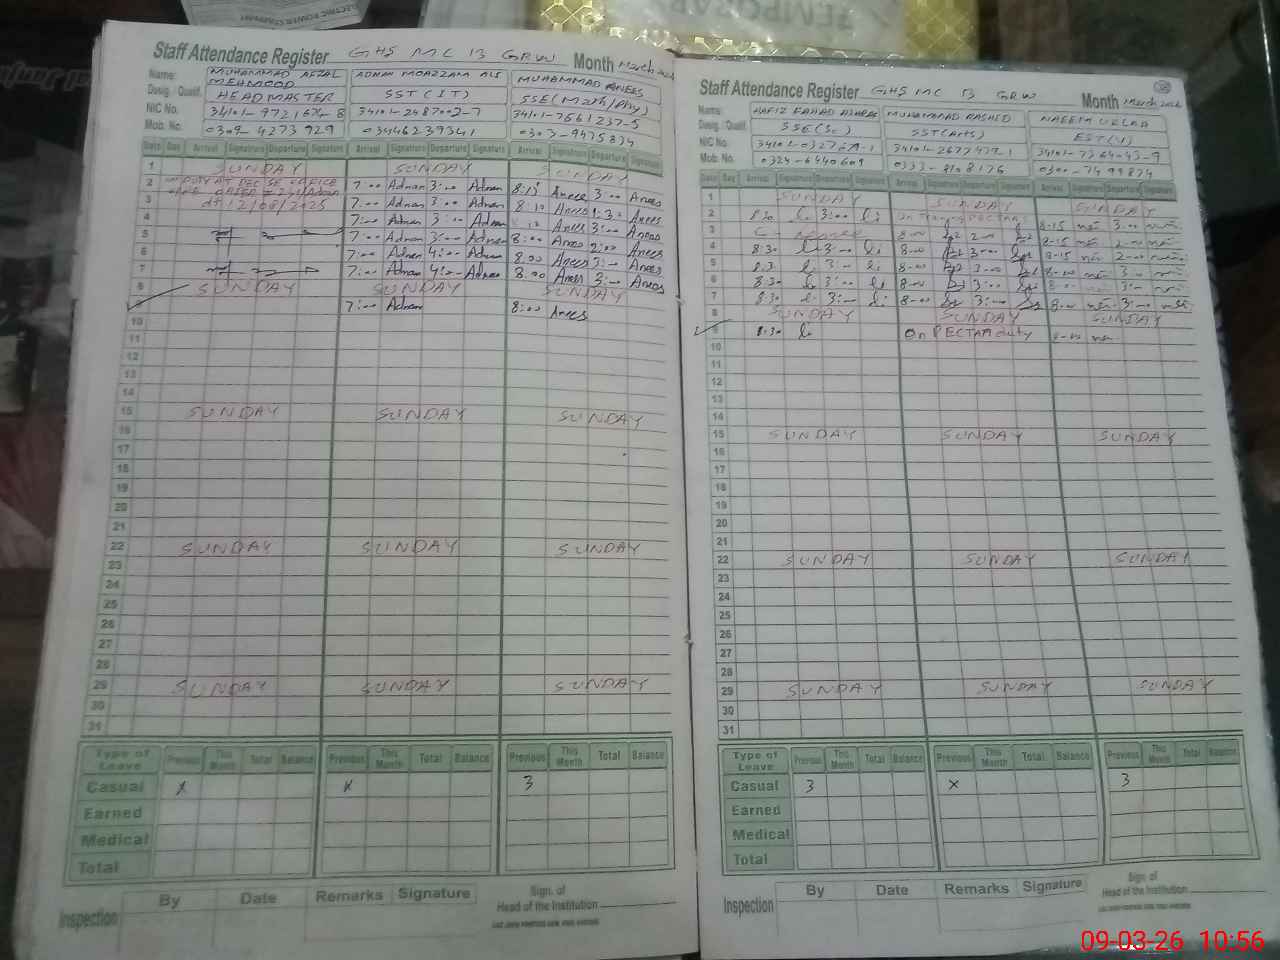 TEMPORARY
ELECTRIC POWER COMPANY
Staff Attendance Register GHS MC 13 GRW Month March 2026
Name: MUHAMMAD AFZAL MEHMOOD ADNAN MOAZZAM ALI MUHAMMAD ANEES
Desig./Qualif. HEADMASTER SST(IT) SSE(Math/Phy)
NIC No. 34101-2487002-7 34101-7661237-5
Mob. No. 0309-4273929 03446239341 0303-9475834
Date Day Arrival Signature Departure Signature Arrival Signature Departure Signature Arrival Signature Departure Signature
1 SUNDAY SUNDAY SUNDAY
2 7:00 Adnan 3:00 Adnan 8:15 Anees 3:00 Anees
3 dt 12/08/2025 7:00 Adnan 3:00 Adnan 8:10 Anees 1:30 Anees
4 7:00 Adnan 3:00 Adnan Anees 3:00 Anees
5 7:00 Adnan 3:00 Adnan 8:00 Anees 2:00 Anees
6 7:00 Adnan 4:00 Adnan 8:00 Anees 3:00 Anees
7 7:00 Adnan 4:00 Adnan 8:00 Anees 3:00 Anees
8 SUNDAY SUNDAY SUNDAY
7:00 Adnan 8:00 Anees
10
11
12
13
14
15 SUNDAY SUNDAY SUNDAY
16
17
18
19
20
21
22 SUNDAY SUNDAY SUNDAY
23
24
25
26
27
28
29 SUNDAY SUNDAY SUNDAY
30
31
Type of Leave Previous This Month Total Balance Previous This Month Total Balance Previous This Month Total Balance
Casual x x 3
Earned
Medical
Total
Inspection By Date Remarks Signature Sign. of Head of the Institution
Staff Attendance Register GHS MC 13 GRW Month March 2026
Name: HAFIZ FAHAD MUHAMMAD RASHED NAEEM ULLAH
Desig./Qualif. SSE(Sc) SST(Arts) EST(V)
NIC No. 34101-2677479-1 34101-7364043-9
Mob. No. 0324-6440609 0333-8108176 0300-7499874
Date Day Arrival Signature Departure Signature Arrival Signature Departure Signature Arrival Signature Departure Signature
1 SUNDAY SUNDAY SUNDAY
2 8:30 3:00 On Training PECTAA 8-15 3:00
3 C-leave 8-00 2-00 8-15 2-00
4 8:30 3:00 8-00 3-00 8-15 2-00
5 8:3 3:00 8-00 3-00 8-00 3-00
6 8:30 3:00 8-00 3:00 8-00 3:00
7 8:30 3:00 8-00 3:00 8-00 3:00
8 SUNDAY SUNDAY SUNDAY
9 8:30 On PECTAA duty 8-00
10
11
12
13
14
15 SUNDAY SUNDAY SUNDAY
16
17
18
19
20
21
22 SUNDAY SUNDAY SUNDAY
23
24
25
26
27
28
29 SUNDAY SUNDAY SUNDAY
30
31
Type of Leave Previous This Month Total Balance Previous This Month Total Balance Previous This Month Total Balance
Casual 3 x 3
Earned
Medical
Total
Inspection By Date Remarks Signature Sign. of Head of the Institution
09-03-26 10:56